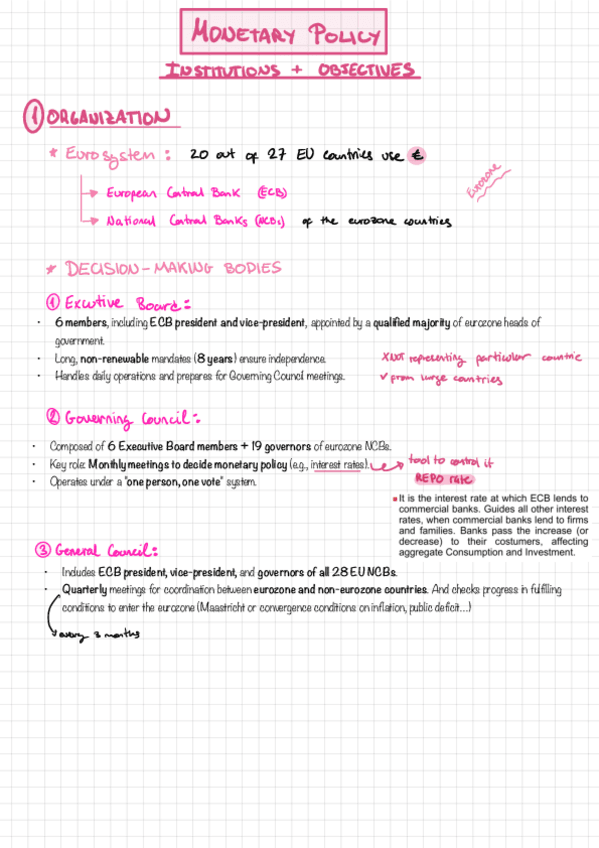 MONETARY POLICY
INSTITUTIONS + OBJECTIVES
① ORGANIZATION
* Eurosystem: 20 out of 27 EU countries use €
Eurozone
→ European Central Bank (ECB)
→ National Central Banks (NCBs) of the eurozone countries
* DECISION-MAKING BODIES
① Excutive Board:
• 6 members, including ECB president and vice-president, appointed by a qualified majority of eurozone heads of
government.
• Long, non-renewable mandates (8 years) ensure independence.
X not representing particular countrie
• Handles daily operations and prepares for Governing Council meetings.
✓ from large countries
② Governing Council:
• Composed of 6 Executive Board members + 19 governors of eurozone NCBs.
• Key role: Monthly meetings to decide monetary policy (e.g., interest rates).
→ tool to control it
REPO rate
• Operates under a "one person, one vote" system.
▪ It is the interest rate at which ECB lends to
commercial banks. Guides all other interest
rates, when commercial banks lend to firms
and families. Banks pass the increase (or
decrease) to their costumers, affecting
aggregate Consumption and Investment.
③ General Council:
• Includes ECB president, vice-president, and governors of all 28 EU NCBs.
• Quarterly meetings for coordination between eurozone and non-eurozone countries. And checks progress in fulfilling
conditions to enter the eurozone (Maastricht or convergence conditions on inflation, public deficit...)
every 3 months